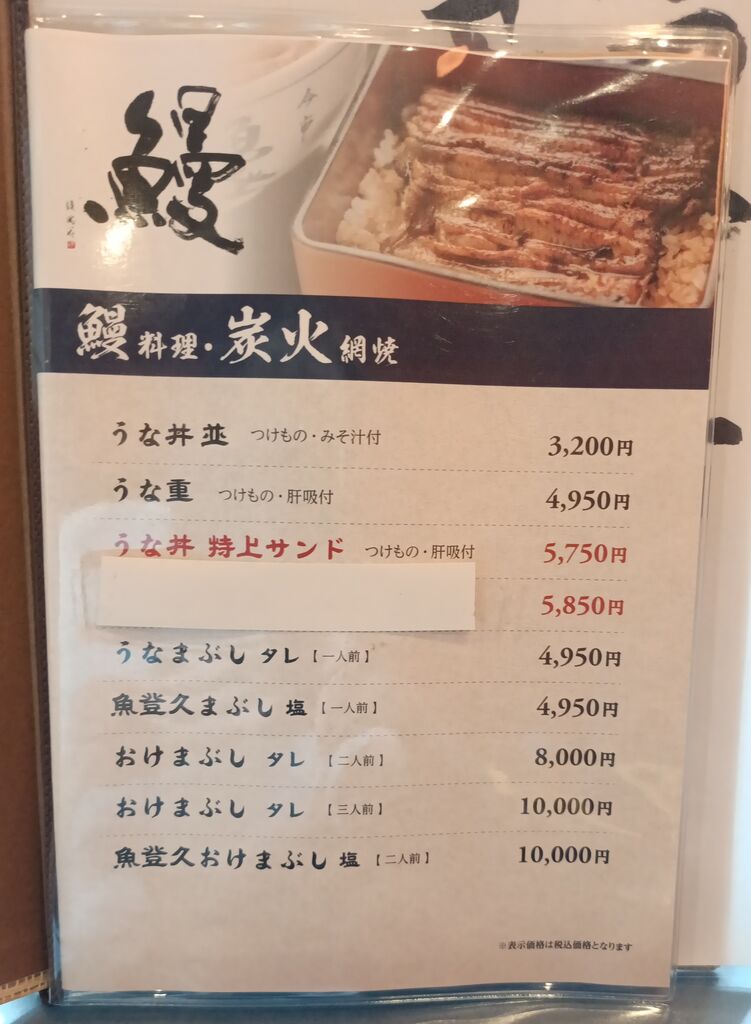 鰻
鰻料理・炭火網焼
うな丼 並 つけもの・みそ汁付 3,200円
うな重 つけもの・肝吸付 4,950円
うな丼 特上サンド つけもの・肝吸付 5,750円
5,850円
うなまぶし タレ 【一人前】 4,950円
魚登久まぶし 塩 【一人前】 4,950円
おけまぶし タレ 【二人前】 8,000円
おけまぶし タレ 【三人前】 10,000円
魚登久おけまぶし 塩 【二人前】 10,000円
※表示価格は税込価格となります